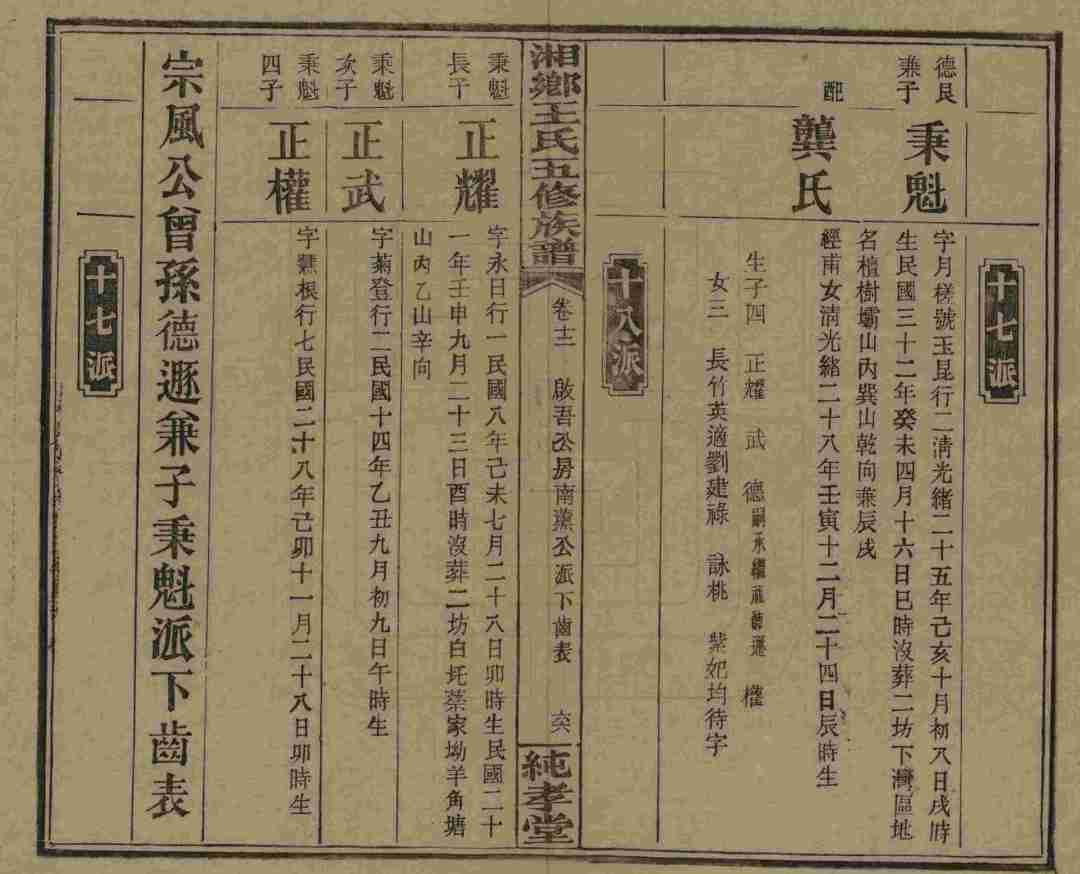 十七派
德艮兼子
秉魁
字月槎號玉昆行二清光緒二十五年己亥十月初八日戌時
生民國三十二年癸未四月十六日巳時沒葬二坊下灣區地
名檀樹壩山內巽山乾向兼辰戌
配
龔氏
經甫女清光緒二十八年壬寅十二月二十四日辰時生
生子四 正耀 武 德嗣承繼 權
女三 長竹英適劉建祿 詠桃 紫妃均待字
十八派
湘鄉王氏五修族譜
卷十二 啟吾公房南薰公派下齒表 六八
純孝堂
秉魁長子
正耀
字永日行一民國八年己未七月二十八日卯時生民國二十
一年壬申九月二十三日酉時沒葬二坊白圫蔡家坳羊角塘
山內乙山辛向
秉魁次子
正武
字菊登行二民國十四年乙丑九月初九日午時生
秉魁四子
正權
字慧根行七民國二十八年己卯十一月二十八日卯時生
宗風公曾孫德遜兼子秉魁派下齒表
十七派